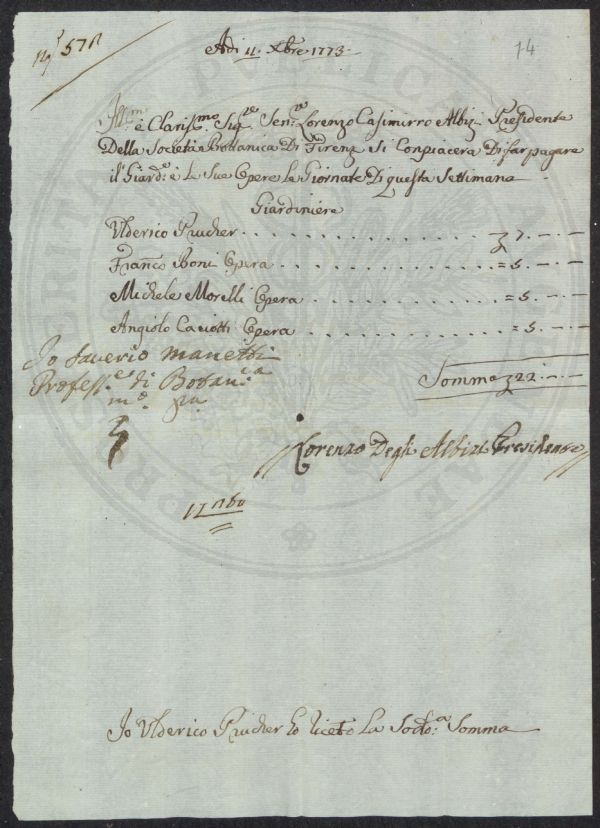 N.º 570
Adi 11. Xbre 1773.
14
Ill.mo e Claris.mo Sig.re Sen.re Lorenzo Casimirro Albizi Presidente
Della Società Bottanica Di Firenz Si Conpiacera Di far pagare
il Giard.e è Le Sue Opere Le Giornate Di questa Settimana
Giardiniere
Ulderico Prucher . . . . . . . . . . . . . . . . 7. — . —
Franc.o Boni Opera . . . . . . . . . . . . . . = 5. — . —
Michele Morelli Opera . . . . . . . . . . . . . = 5. — . —
Angiolo Caciotti Opera . . . . . . . . . . . . = 5. — . —
Somma 22. — . —
Io Saverio Manetti
Profess.e di Botan.ca
m.o pa.
Lorenzo Degli Albizi Presidente
Io Ulderico Prucher ho riceto La Sodo.a Somma